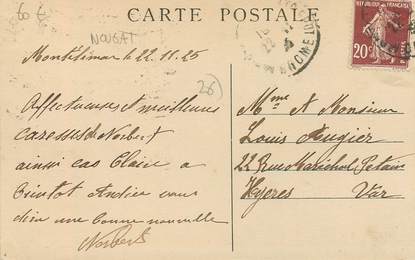 CARTE POSTALE
60
NOUGAT
(26)
Montélimar le 22.11.25
Affectueuses et meilleures
caresses de Norbert
ainsi cas Claire a
bientot Andrée vous
dire une bonne nouvelle
Norbert
20c
Mme et Monsieur
Louis Augier
22 Rue Maréchal Petain
Hyeres Var